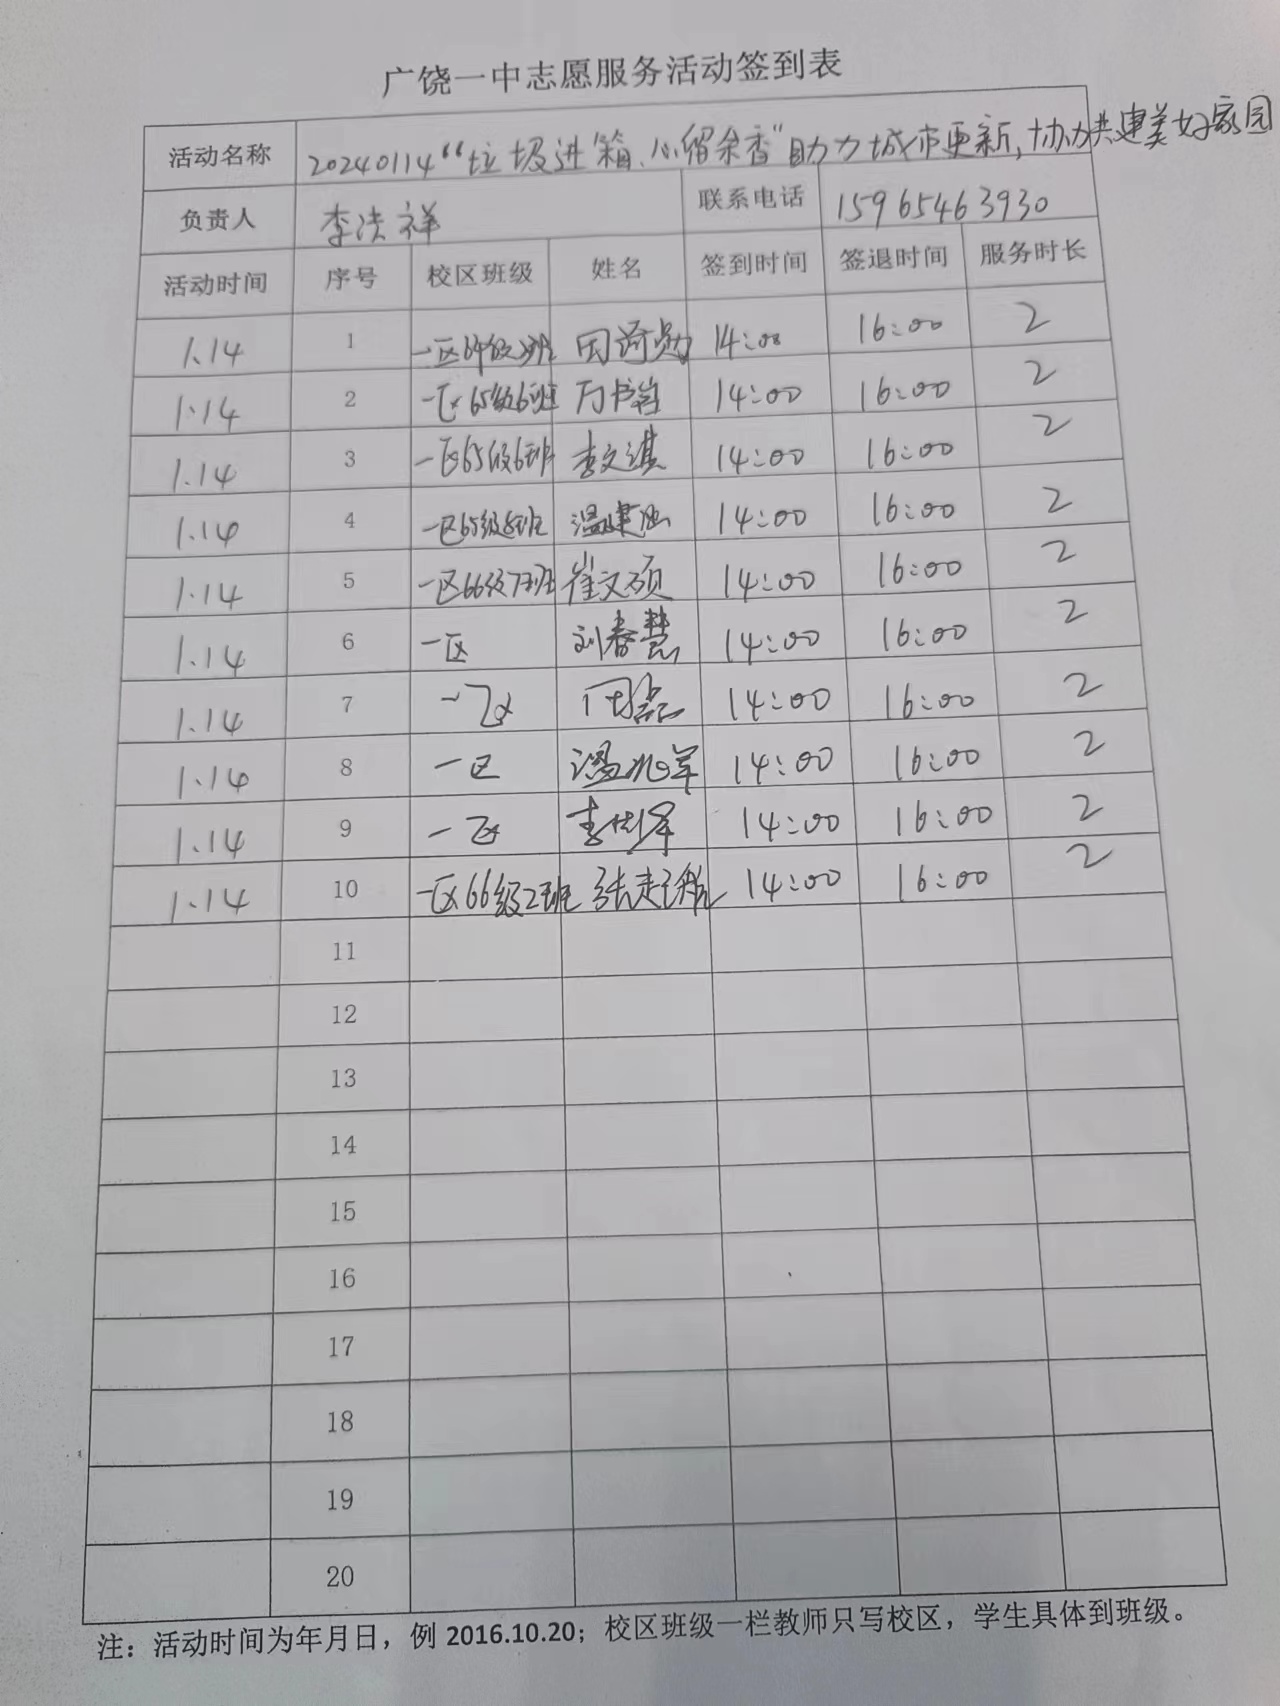 广饶一中志愿服务活动签到表
活动名称 20240114“垃圾进箱、心留余香”助力城市更新,协力共建美好家园
负责人 李洪祥 联系电话 15965463930
活动时间 序号 校区班级 姓名 签到时间 签退时间 服务时长
1.14 1 一区 14:00 16:00 2
1.14 2 一区65级6班 14:00 16:00 2
1.14 3 一区65级6班 李文淇 14:00 16:00 2
1.14 4 一区65级8班 温建 14:00 16:00 2
1.14 5 一区66级7班 崔文硕 14:00 16:00 2
1.14 6 一区 刘春慧 14:00 16:00 2
1.14 7 一区 14:00 16:00 2
1.14 8 一区 温兆军 14:00 16:00 2
1.14 9 一区 14:00 16:00 2
1.14 10 一区66级2班 张起航 14:00 16:00 2
11
12
13
14
15
16
17
18
19
20
注：活动时间为年月日，例 2016.10.20；校区班级一栏教师只写校区，学生具体到班级。